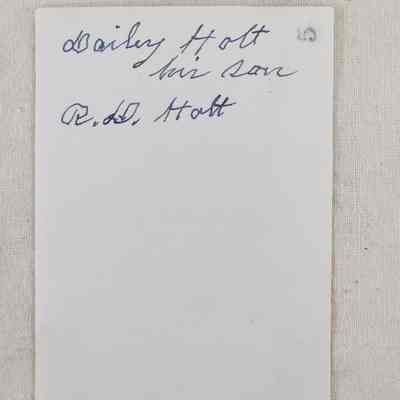 Bailey Holt
his son
R.D. Holt